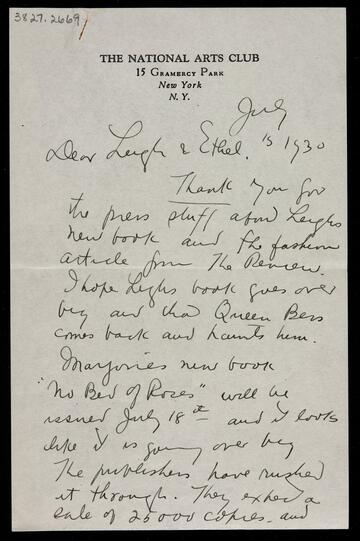 3827.2669
THE NATIONAL ARTS CLUB
15 GRAMERCY PARK
New York
N. Y.
July
Dear Leigh & Ethel. 15 1930
Thank you for
the press stuff about Leighs
new book and the fashion
article from The Review.
I hope Leighs book goes over
big and that Queen Bess
comes back and haunts him.
Marjories new book
"No Bed of Roses" will be
issued July 18th and it looks
like it is going over big
The publishers have rushed
it through. They expect a
sale of 25000 copies. and